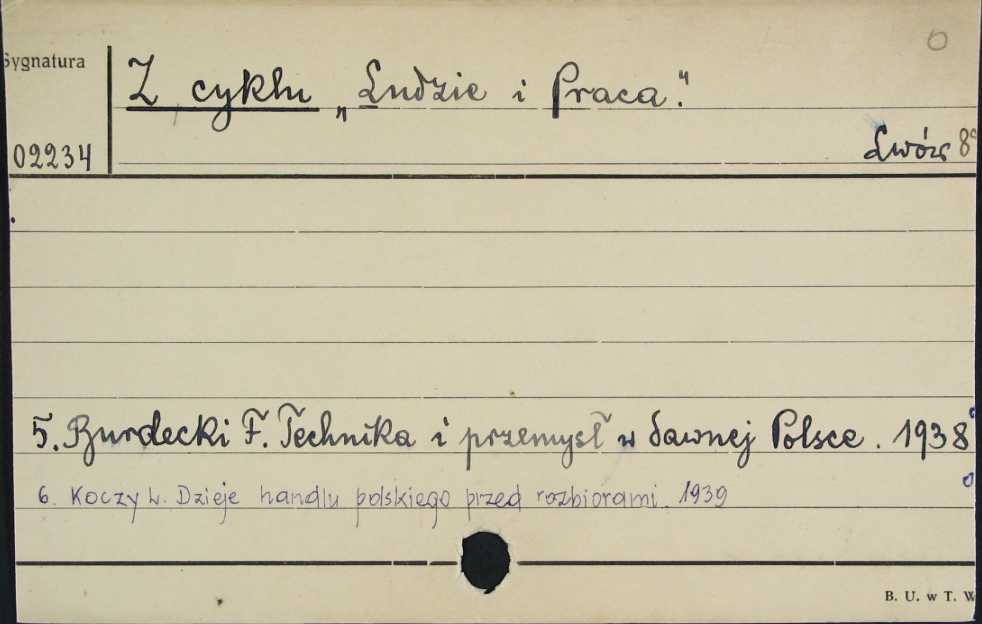 0
Sygnatura
Z cyklu „Ludzie i Praca."
02234
Lwów 8°
5. Burdecki F. Technika i przemysł w dawnej Polsce. 1938
6. Koczy L. Dzieje handlu polskiego przed rozbiorami. 1939
B. U. w T. W